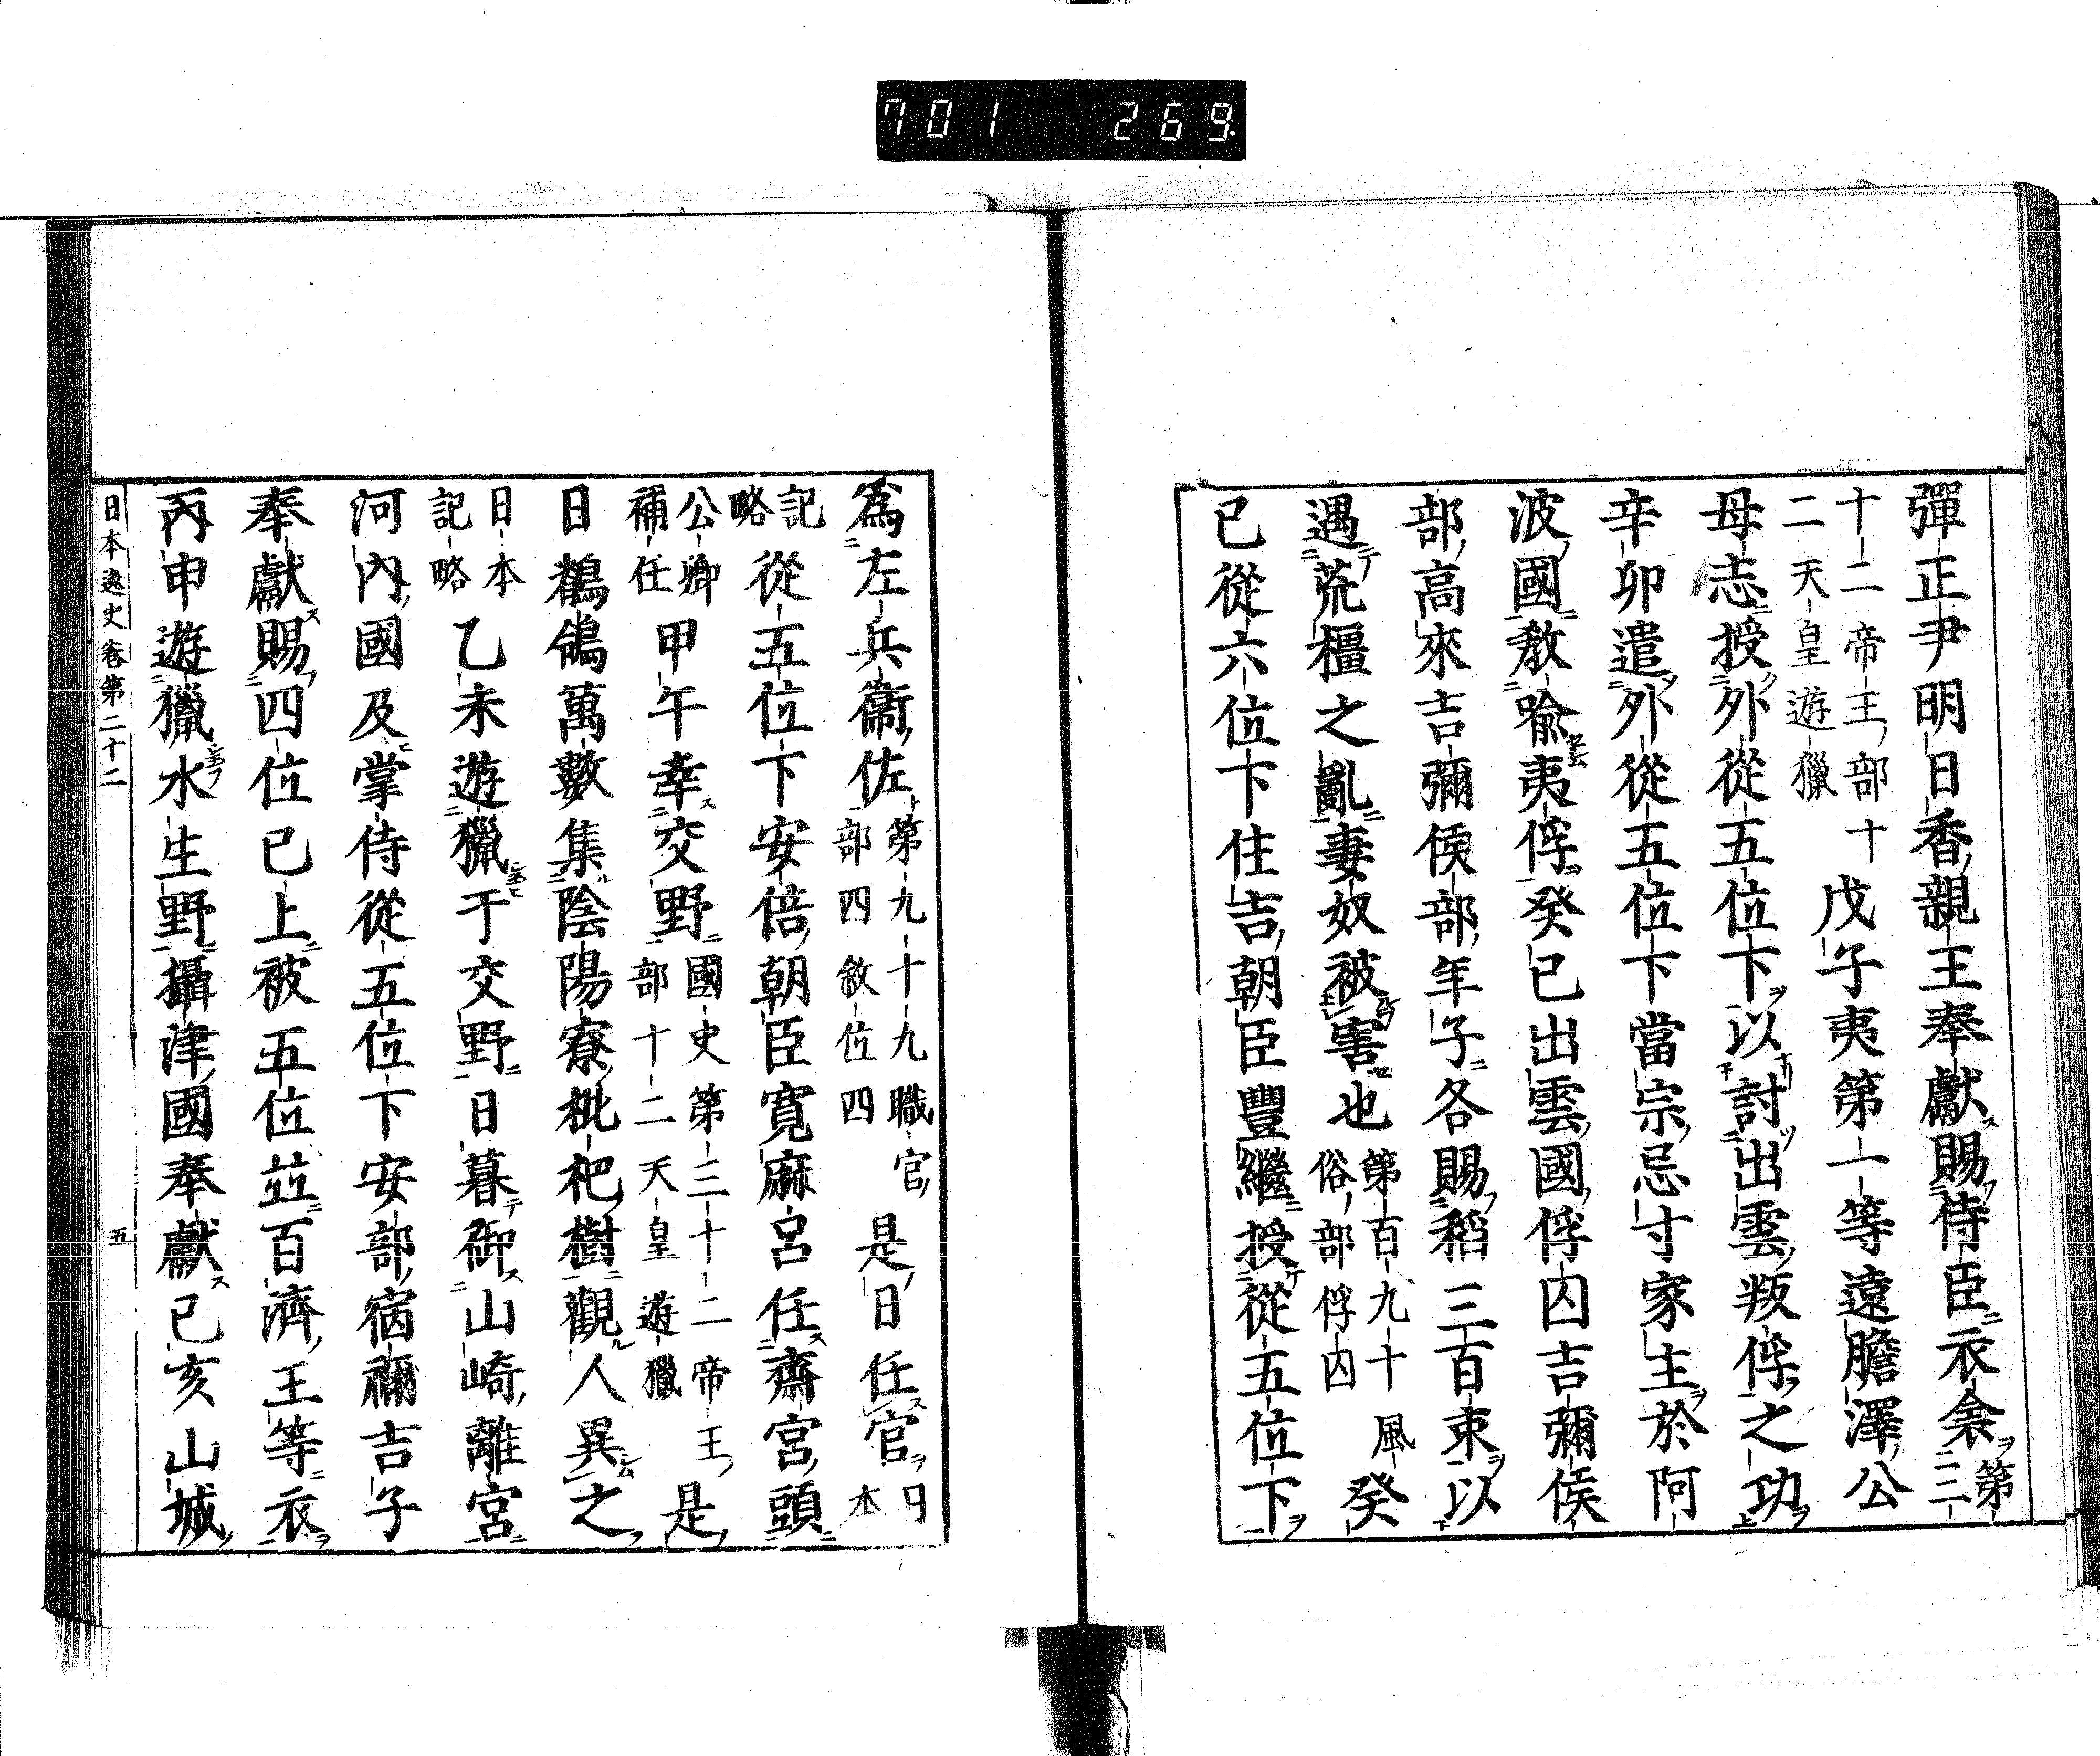 701 269
彈正尹明日香親王奉獻賜侍臣衣衾第三
十二帝王部十二天皇遊獵 戊子夷第一等遠膽澤公
母志授外從五位下以討出雲叛俘之功
辛卯遣外從五位下當宗忌寸家主於阿
波國教喩夷俘癸巳出雲國俘囚吉彌侯
部高來吉彌侯部年子各賜稻三百束以
遇荒橿之亂妻奴被害也第百九十風俗部俘囚 癸
巳從六位下住吉朝臣豐繼授從五位下
爲左兵衞佐第九十九職官部四敘位四 是日任官日本
記略 從五位下安倍朝臣寬麻呂任齋宮頭
公卿補任 甲午幸交野國史第三十二帝王部十二天皇遊獵 是
日鶺鴒萬數集陰陽寮枇杷樹觀人異之
日本記略 乙未遊獵于交野日暮御山崎離宮
河內國及掌侍從五位下安部宿禰吉子
奉獻賜四位已上被五位竝百濟王等衣
丙申遊獵水生野攝津國奉獻己亥山城
日本逸史卷第二十二 五